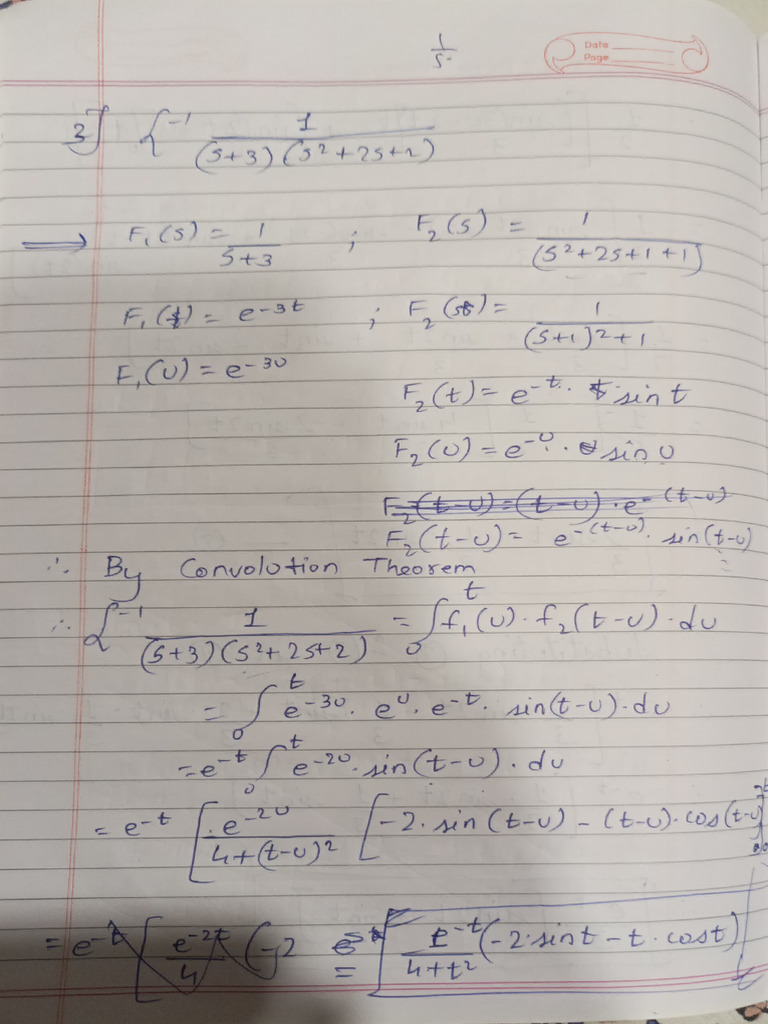 1/s
Date
Page
3] L⁻¹ 1/((s+3)(s²+2s+2))
⟹ F₁(s) = 1/(s+3) ; F₂(s) = 1/(s²+2s+1+1)
F₁(t) = e⁻³ᵗ ; F₂(s) = 1/((s+1)²+1)
F₁(u) = e^-3u
F₂(t) = e^-t · sin t
F₂(u) = e^-u · sin u
F₂(t-u) = (t-u) · e^-(t-u)
F₂(t-u) = e^-(t-u) · sin(t-u)
∴ By Convolution Theorem
∴ L⁻¹ 1/((s+3)(s²+2s+2)) = ∫₀ᵗ f₁(u) · f₂(t-u) · du
= ∫₀ᵗ e^-3u · e^u · e^-t · sin(t-u) · du
= e^-t ∫₀ᵗ e^-2u · sin(t-u) · du
= e^-t [ e^-2u/(4+(t-u)²) [-2 · sin(t-u) - (t-u) · cos(t-u)
= e^-t [ e^-2t/4 (-2
= e^-t/(4+t²) (-2 · sin t - t · cos t)